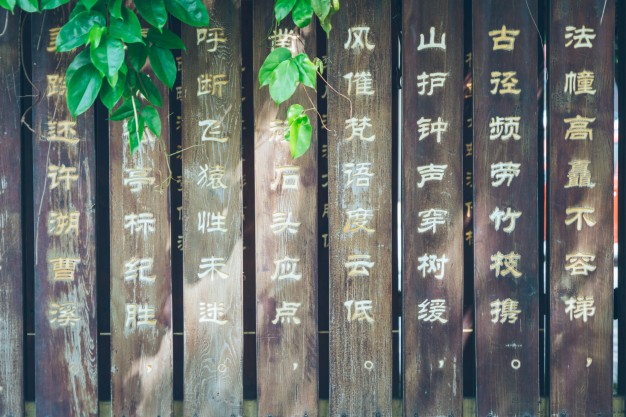 法幢高矗不容梯，
古径频劳竹杖携。
山护钟声穿树缓，
风催梵语度云低。
石头应点，
呼断飞猿性未迷
亭标纪胜
路还许溯曹溪